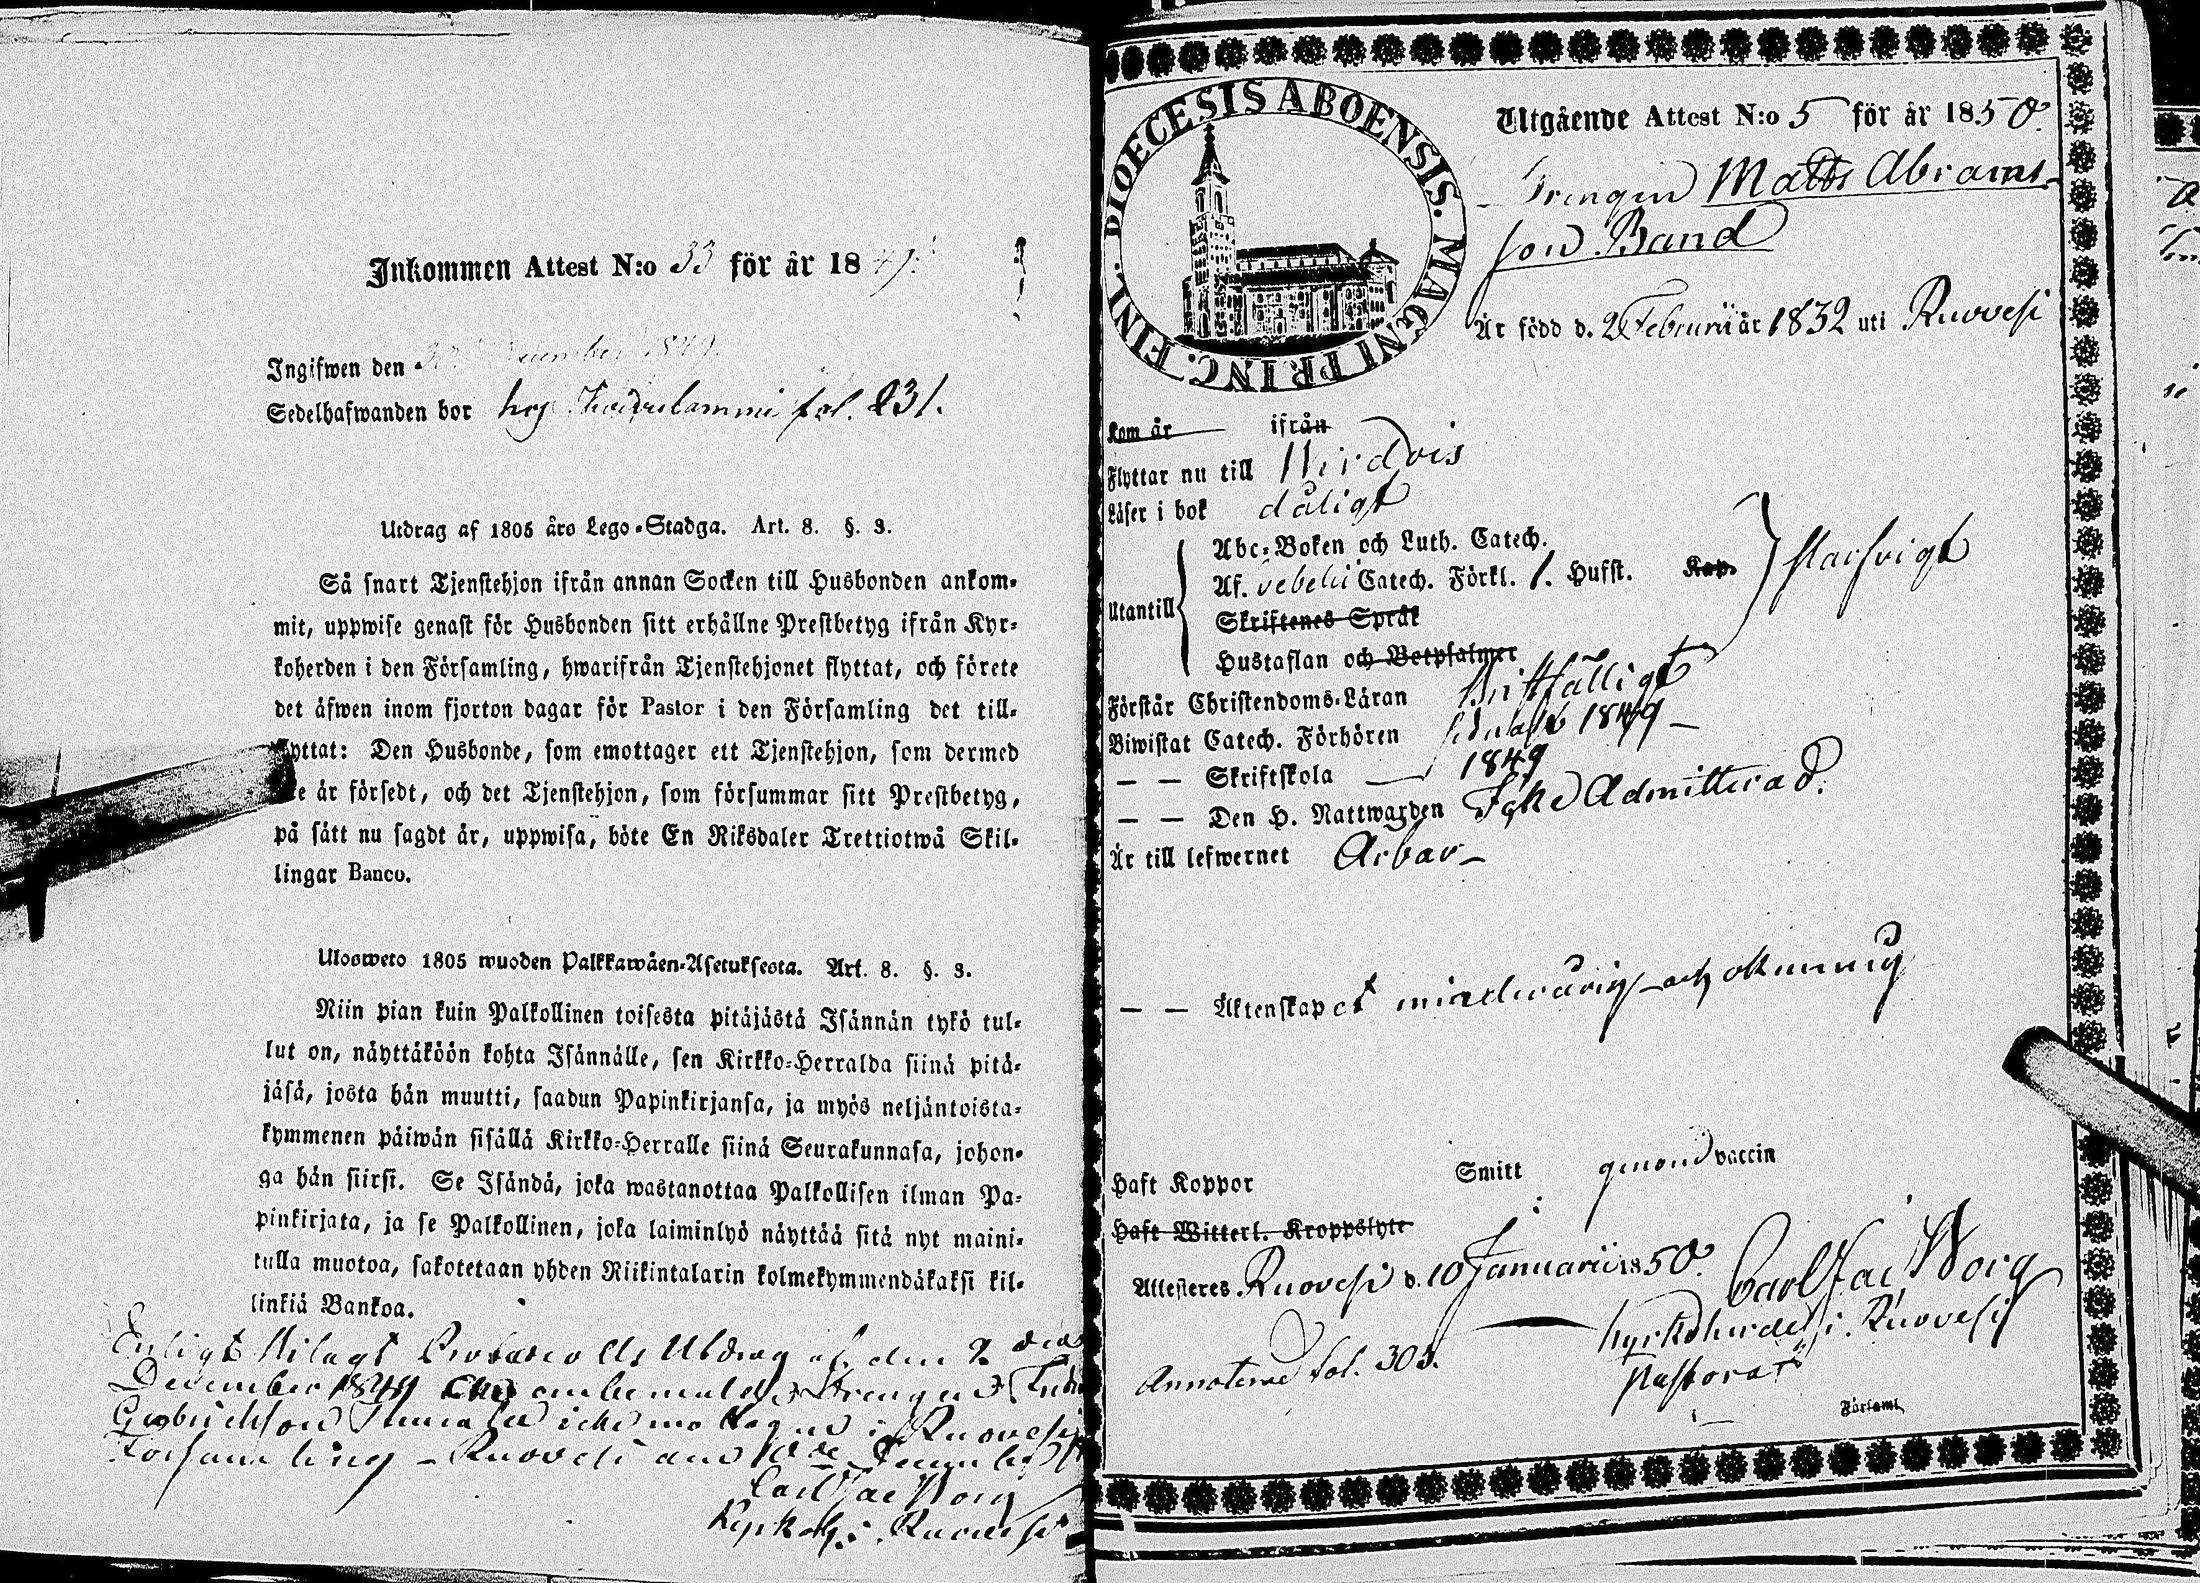 Inkommen Attest N:o 33 för år 1849.
Ingifwen den December 1849.
Sedelhafwanden bor fol. 231.
Utdrag af 1805 års Lego-Stadga. Art. 8. §. 3.
Så snart Tjenstehjon ifrån annan Socken till Husbonden ankom-
mit, uppwise genast för Husbonden sitt erhållne Prestbetyg ifrån Kyr-
koherden i den Församling, hwarifrån Tjenstehjonet flyttat, och förete
det äfwen inom fjorton dagar för Pastor i den Församling det till-
flyttat: Den Husbonde, som emottager ett Tjenstehjon, som dermed
är försedt, och det Tjenstehjon, som försummar sitt Prestbetyg,
på sätt nu sagdt är, uppwisa, böte En Riksdaler Trettiotwå Skil-
lingar Banco.
Ulosweto 1805 wuoden Palkkawäen-Asetuksesta. Art. 8. §. 3.
Niin pian kuin Palkollinen toisesta pitäjästä Isännän tykö tul-
lut on, näyttäköön kohta Isännälle, sen Kirkko-Herralda siinä pitä-
jäsä, josta hän muutti, saadun Papinkirjansa, ja myös neljäntoista-
kymmenen päiwän sisällä Kirkko-Herralle siinä Seurakunnasa, johon-
ga hän siirsi. Se Isändä, joka wastanottaa Palkollisen ilman Pa-
pinkirjata, ja se Palkollinen, joka laiminlyö näyttää sitä nyt maini-
tulla muotoa, sakotetaan yhden Riikintalarin kolmekymmendäkaksi kil-
linkiä Bankoa.
Enligt Bilagt Protocolls Utdrag af den 2
December 1849 ombemälde Drengen
Gabrielsson icke i Ruovesi
Församling - Ruovesi
Carl Jac Borg
Kyrkoh. i Ruovesi
DIOECESIS ABOENSIS. MAGNI PRINC. FINL.
Utgående Attest N:o 5 för år 1850.
Drengen Matts Abrams-
son Band
Är född d. 2 Februarii år 1832 uti Ruovesi
Kom år ifrån
Flyttar nu till Wirdois
Läser i bok dåligt
Utantill Abc-Boken och Luth. Catech.
Af. Catech. Förkl. 1. Hufst. Kap.
Skriftenes Språk
Hustaflan och Botpsalmer
Förstår Christendoms-Läran
Biwistat Catech. Förhören sednast 1849
— — Skriftskola 1849
— — Den H. Nattwarden Icke Admitterad.
Är till lefwernet Ärbar
— — Äktenskapet minderårig och okunnig
Haft Koppor Smitt genom vaccin
Haft Witterl. Kroppslyte
Attesteres Ruovesi d. 10 Januarii 1850. Carl Jac Borg
Kyrkoherde i Ruovesi
Annoterad fol. 305. Pastorat
Församl.